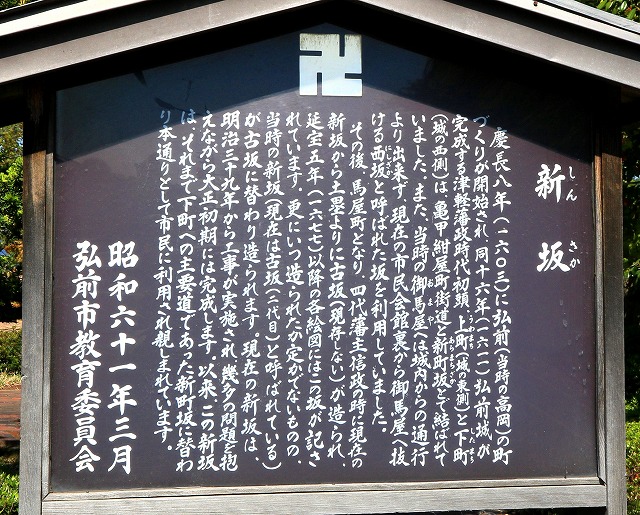 新坂
しんさか
慶長八年(一六〇三)に弘前(当時の高岡)の町
づくりが開始され、同十六年(一六一一)弘前城が
完成する津軽藩政時代初頭、上町(城の東側)と下町
(城の西側)は、亀甲紺屋町街道と新町坂とで結ばれて
いました。また、当時の御馬屋は城内からの通行
より出来ず、現在の市民会館裏から御馬屋へ抜
ける西坂と呼ばれた坂を利用していました。
その後、馬屋町となり、四代藩主信政の時に現在の
新坂から土塁よりに古坂(現存しない)が造られ、
延宝五年(一六七七)以降の各絵図にはこの坂が記さ
れています。更にいつ造られたか定かでないものの、
当時の新坂(現在は古坂(二代目)と呼ばれている)
が古坂に替わり造られます。現在の新坂は、
明治三十九年から工事が実施され、幾多の問題を抱
えながら大正初期には完成します。以来、この新坂
は、それまで下町への主要道であった新町坂に替わ
り本通りとして市民に利用され親しまれています。
昭和六十一年三月
弘前市教育委員会